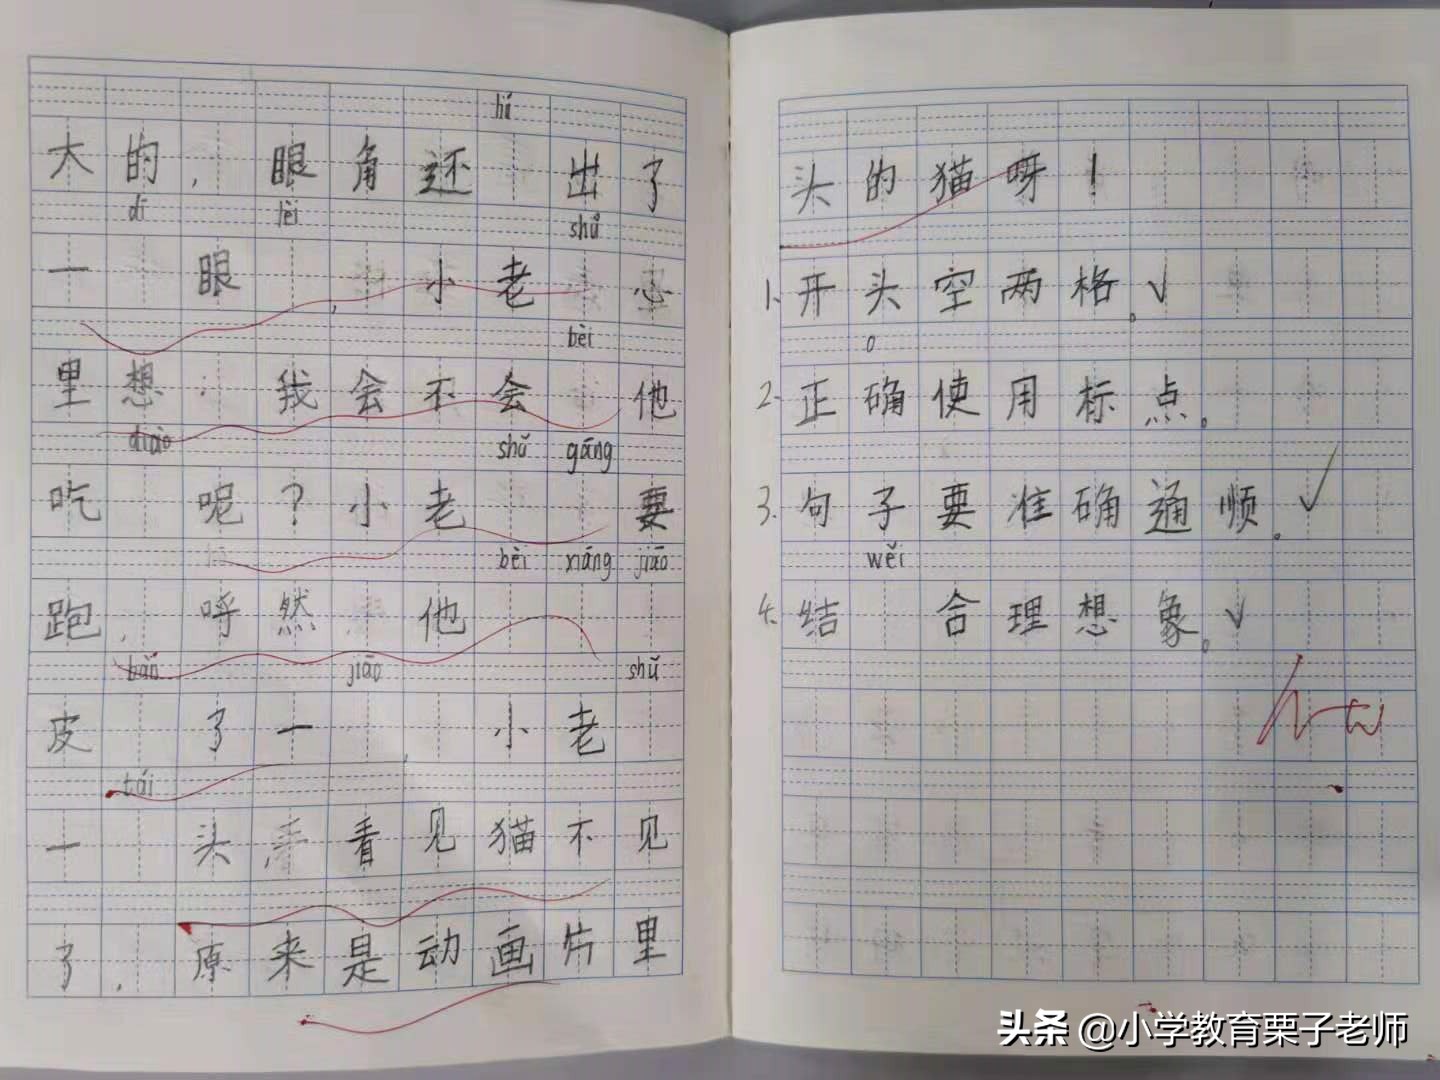 大的，眼角还 出了
dī lèi shǔ
一 眼 ，小老 心
bèi
里想：我会不会 他
diào shǔ gāng
吃 呢？小老 要
bèi xiáng jiāo
跑，呼然 他
bǎn jiāo shǔ
皮 了一 ，小老
tái
一 头 看见猫不见
了，原来是动画片里
头的猫呀！
1.开头空两格。✓
2.正确使用标点。
3.句子要准确通顺。✓
wěi
4.结 合理想象。✓
头条 @小学教育栗子老师